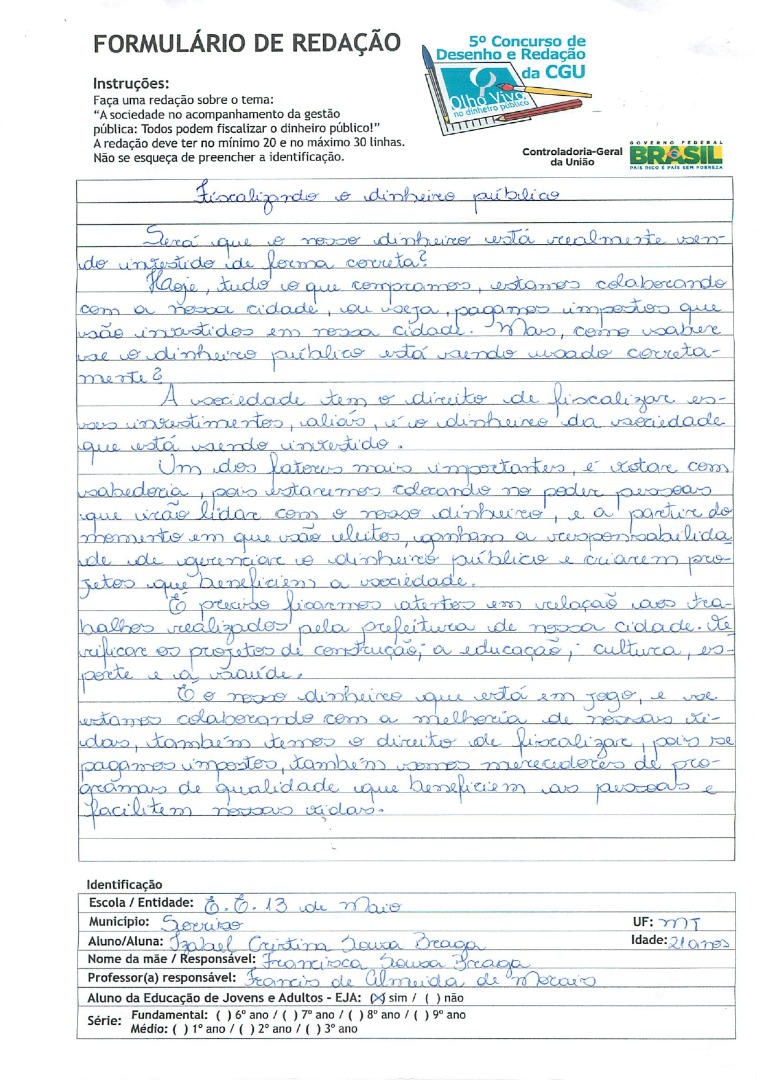 FORMULÁRIO DE REDAÇÃO
5º Concurso de
Desenho e Redação
da CGU
Olho Vivo
no dinheiro público
Instruções:
Faça uma redação sobre o tema:
"A sociedade no acompanhamento da gestão
pública: Todos podem fiscalizar o dinheiro público!"
A redação deve ter no mínimo 20 e no máximo 30 linhas.
Não se esqueça de preencher a identificação.
Controladoria-Geral
da União
GOVERNO FEDERAL
BRASIL
PAÍS RICO É PAÍS SEM POBREZA
Fiscalizando o dinheiro público
Será que o nosso dinheiro está realmente sen-
do investido de forma correta?
Hoje, tudo o que compramos, estamos colaborando
com a nossa cidade, ou seja, pagamos impostos que
são investidos em nossa cidade. Mais, como saber
se o dinheiro público está sendo usado correta-
mente?
A sociedade tem o direito de fiscalizar es-
ses investimentos, aliás, é o dinheiro da sociedade
que está sendo investido.
Um dos fatores mais importantes, é votar com
sabedoria, pois estaremos colocando no poder pessoas
que irão lidar com o nosso dinheiro, e a partir do
momento em que são eleitos, ganham a responsabilida
de de gerenciar o dinheiro público e criarem pro-
jetos que beneficiem a sociedade.
É preciso ficarmos atentos em relação aos tra-
balhos realizados pela prefeitura de nossa cidade. Ve
rificar os projetos de construção, a educação, cultura, es-
porte e a saúde.
É o nosso dinheiro que está em jogo, e se
estamos colaborando com a melhoria de nossas vi-
das, também temos o direito de fiscalizar, pois se
pagamos impostos, também somos merecedores de pro-
gramas de qualidade que beneficiem as pessoas e
facilitem nossas vidas.
Identificação
Escola / Entidade: E. E. 13 de Maio
Município: Sorriso UF: MT
Aluno/Aluna: Izabel Cristina Sousa Braga Idade: 21 anos
Nome da mãe / Responsável: Francisca Sousa Braga
Professor(a) responsável: Francis de Almeida de Morais
Aluno da Educação de Jovens e Adultos - EJA: (X) sim / ( ) não
Série: Fundamental: ( ) 6º ano / ( ) 7º ano / ( ) 8º ano / ( ) 9º ano
Médio: ( ) 1º ano / ( ) 2º ano / ( ) 3º ano